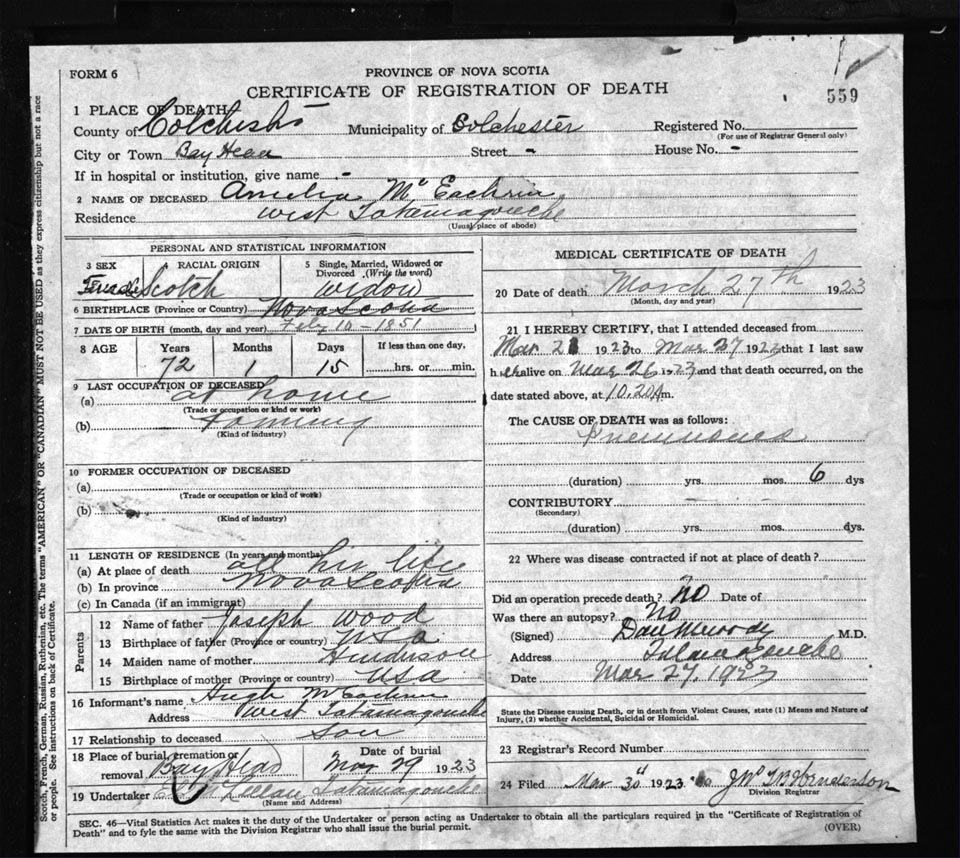 FORM 6
PROVINCE OF NOVA SCOTIA
CERTIFICATE OF REGISTRATION OF DEATH
559
1 PLACE OF DEATH
County of Colchester Municipality of Colchester Registered No.
(For use of Registrar General only)
City or Town Bay Head Street - House No. -
If in hospital or institution, give name -
2 NAME OF DECEASED Amelia McEachrin
Residence West Tatamagouche
(Usual place of abode)
PERSONAL AND STATISTICAL INFORMATION
3 SEX RACIAL ORIGIN 5 Single, Married, Widowed or Divorced (Write the word)
Female Scotch Widow
6 BIRTHPLACE (Province or Country) Nova Scotia
7 DATE OF BIRTH (month, day and year) Feby 10-1851
8 AGE Years Months Days If less than one day,
72 1 15 hrs. or min.
9 LAST OCCUPATION OF DECEASED
(a) at home
(Trade or occupation or kind or work)
(b) Farming
(Kind of industry)
10 FORMER OCCUPATION OF DECEASED
(a)
(Trade or occupation or kind of work)
(b)
(Kind of industry)
11 LENGTH OF RESIDENCE (In years and months)
(a) At place of death all his life
(b) In province Nova Scotia
(c) In Canada (if an immigrant)
Parents
12 Name of father Joseph Wood
13 Birthplace of father (Province or country) NSa
14 Maiden name of mother Henderson
15 Birthplace of mother (Province or country)
16 Informant's name Hugh McEachrin
Address West Tatamagouche
17 Relationship to deceased son
18 Place of burial, cremation or removal Bay Head Date of burial Mar 29 1923
19 Undertaker Tatamagouche
(Name and Address)
MEDICAL CERTIFICATE OF DEATH
20 Date of death March 27th 1923
(Month, day and year)
21 I HEREBY CERTIFY, that I attended deceased from
Mar 21 1923 to Mar 27 1923 that I last saw
h er alive on Mar 26 1923 and that death occurred, on the
date stated above, at 10.20 A m.
The CAUSE OF DEATH was as follows:
Pneumonia
(duration) yrs. mos. 6 dys
CONTRIBUTORY
(Secondary)
(duration) yrs. mos. dys.
22 Where was disease contracted if not at place of death?
Did an operation precede death? No Date of
Was there an autopsy? No
(Signed) Dan Murray M.D.
Address Tatamagouche
Date Mar 27, 1923
State the Disease causing Death, or in death from Violent Causes, state (1) Means and Nature of Injury, (2) whether Accidental, Suicidal or Homicidal.
23 Registrar's Record Number
24 Filed Mar 30 1923 Henderson
Division Registrar
SEC. 46—Vital Statistics Act makes it the duty of the Undertaker or person acting as Undertaker to obtain all the particulars required in the "Certificate of Registration of
Death" and to fyle the same with the Division Registrar who shall issue the burial permit.
(OVER)
Scotch, French, German, Russian, Ruthenian, etc. The terms "AMERICAN" or "CANADIAN" MUST NOT BE USED as they express citizenship but not a race
or people. See instructions on back of Certificate.